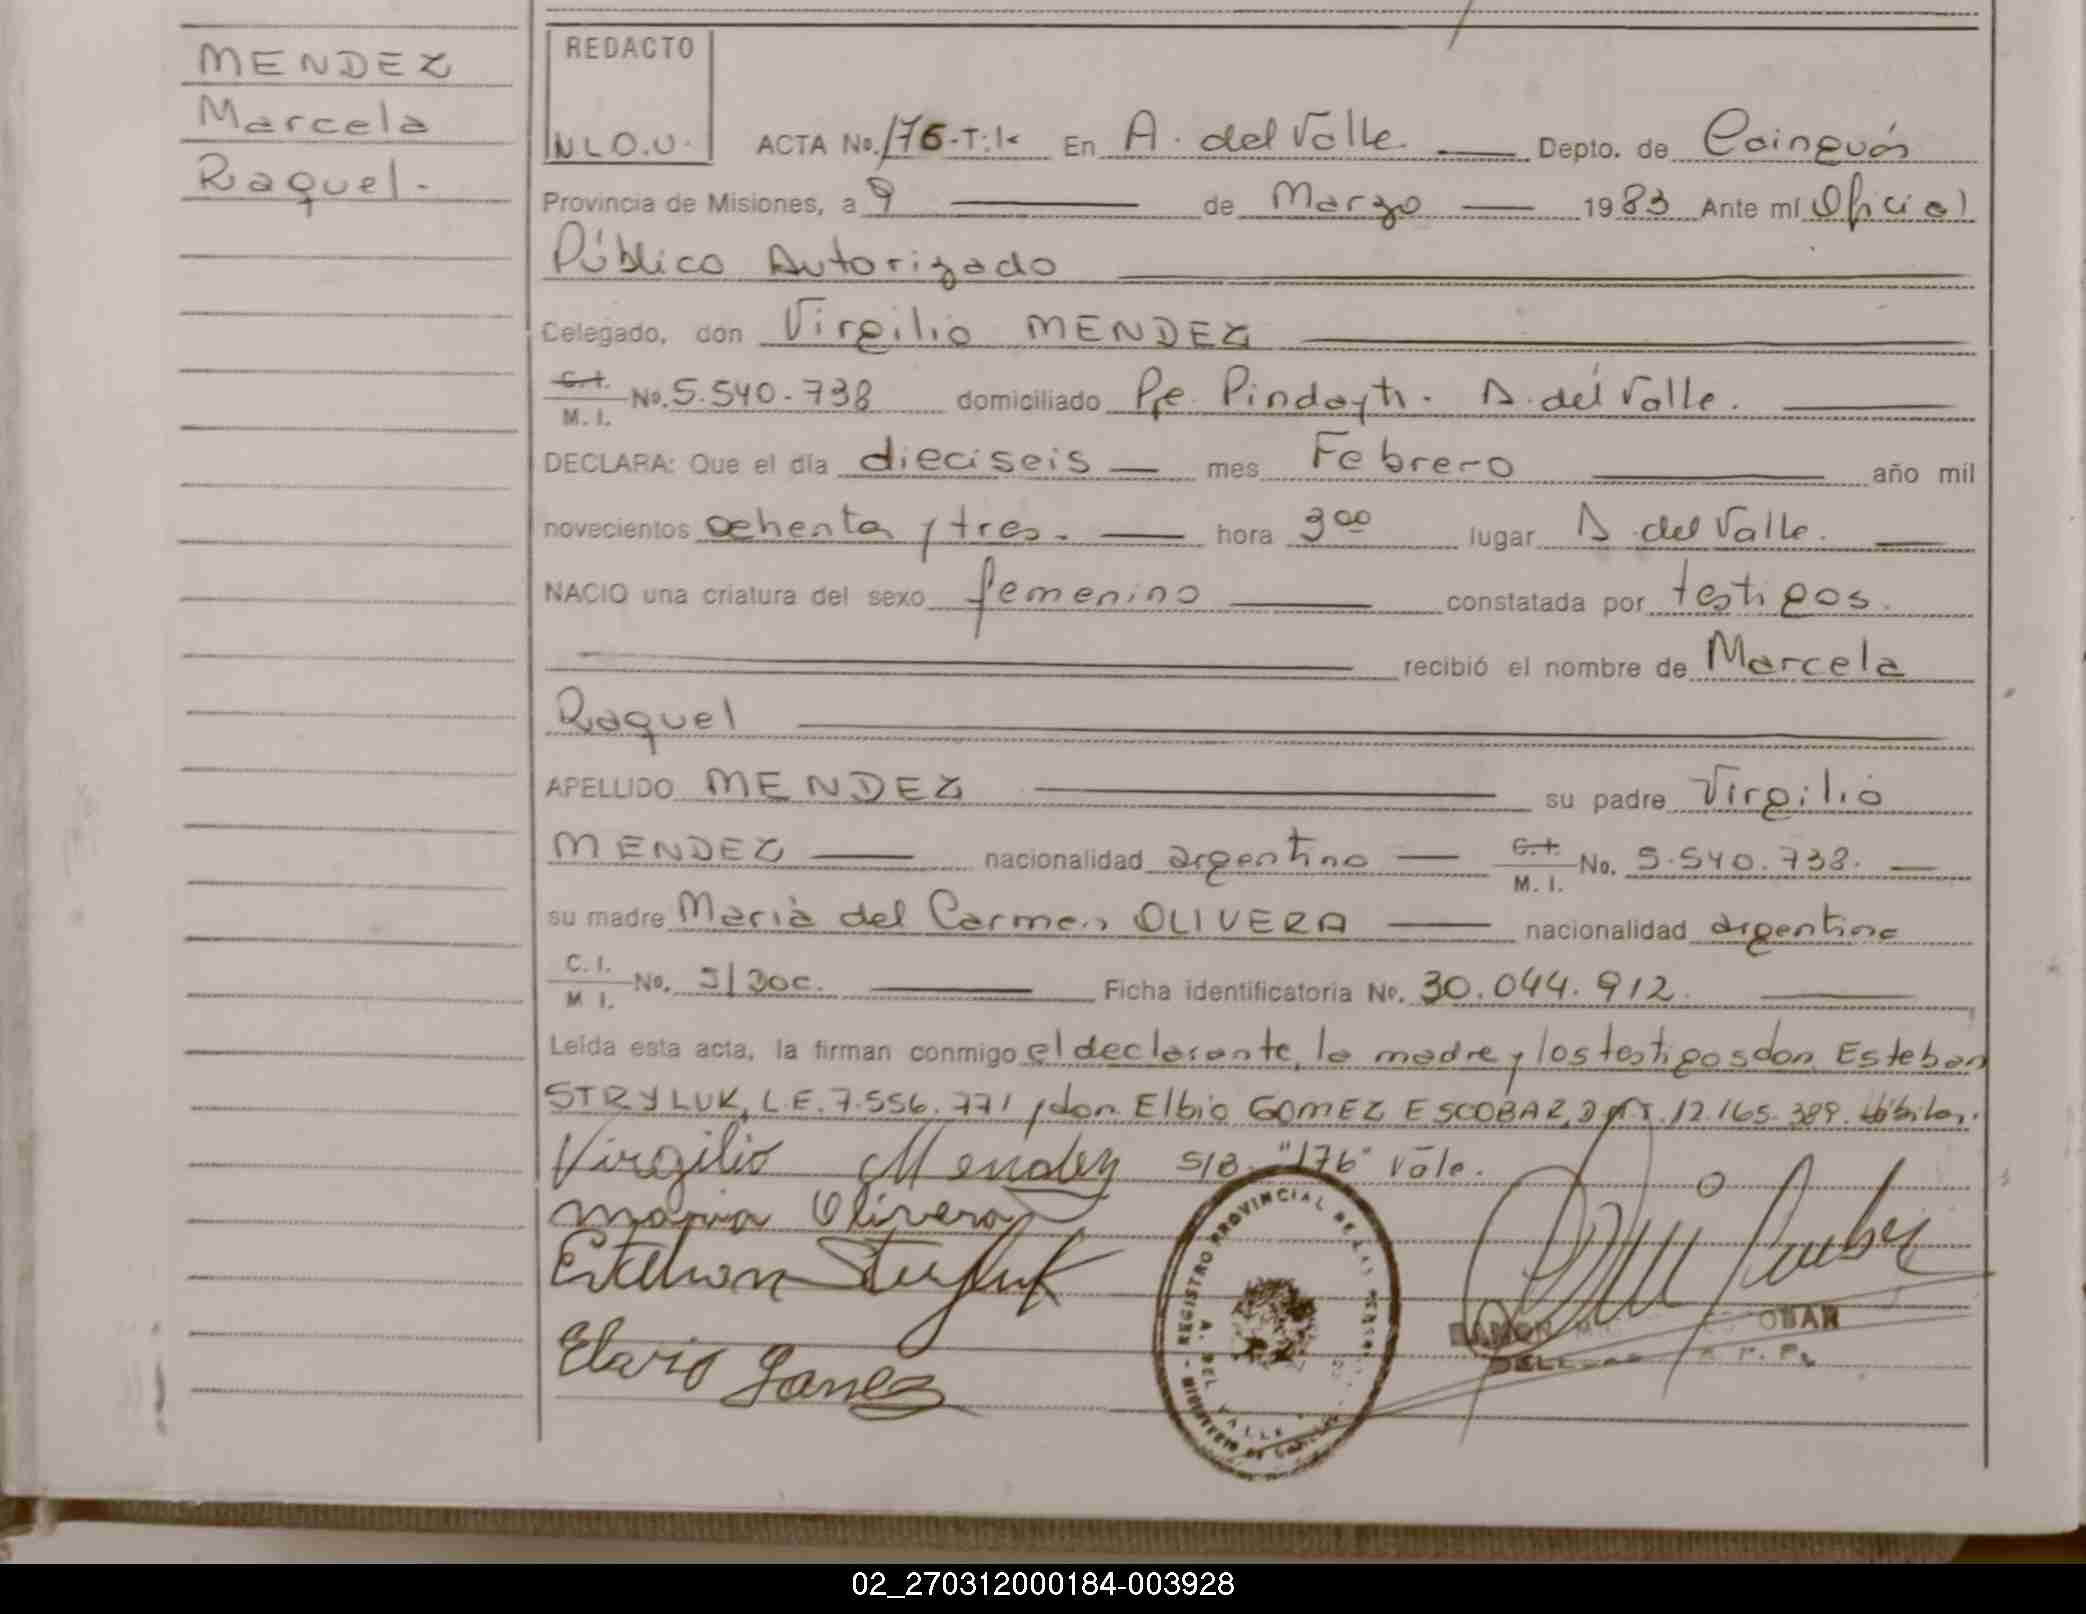 MENDEZ
Marcela
Raquel.-
REDACTO
N.L.O.U.
ACTA No. 176-T:1º En A. del Valle. Depto. de Cainguás
Provincia de Misiones, a 9 de Marzo 1983 Ante mí Oficial
Público Autorizado
Celegado, don Virgilio MENDEZ
C.I. M. I. No. 5.540.738 domiciliado Pje. Pindayti. A. del Valle.
DECLARA: Que el día dieciseis mes Febrero año mil
novecientos ochenta y tres. hora 3 00 lugar A. del Valle.
NACIO una criatura del sexo femenino constatada por testigos.
recibió el nombre de Marcela
Raquel
APELLIDO MENDEZ su padre Virgilio
MENDEZ nacionalidad argentino C.I. M. I. No. 5.540.738.
su madre María del Carmen OLIVERA nacionalidad argentina
C. I. M I. No. S/Doc. Ficha identificatoria No. 30.044.912.
Leída esta acta, la firman conmigo el declarante, la madre y los testigos don Esteban
STRYLUK, L.E. 7.556.771 y don Elbio GOMEZ ESCOBAR, 12.165.389.
Virgilio Mendez S/B. "176" Vale.
Maria Olivera
Esteban Stryluk
REGISTRO PROVINCIAL DE LAS PERSONAS
A. DEL VALLE
02_270312000184-003928